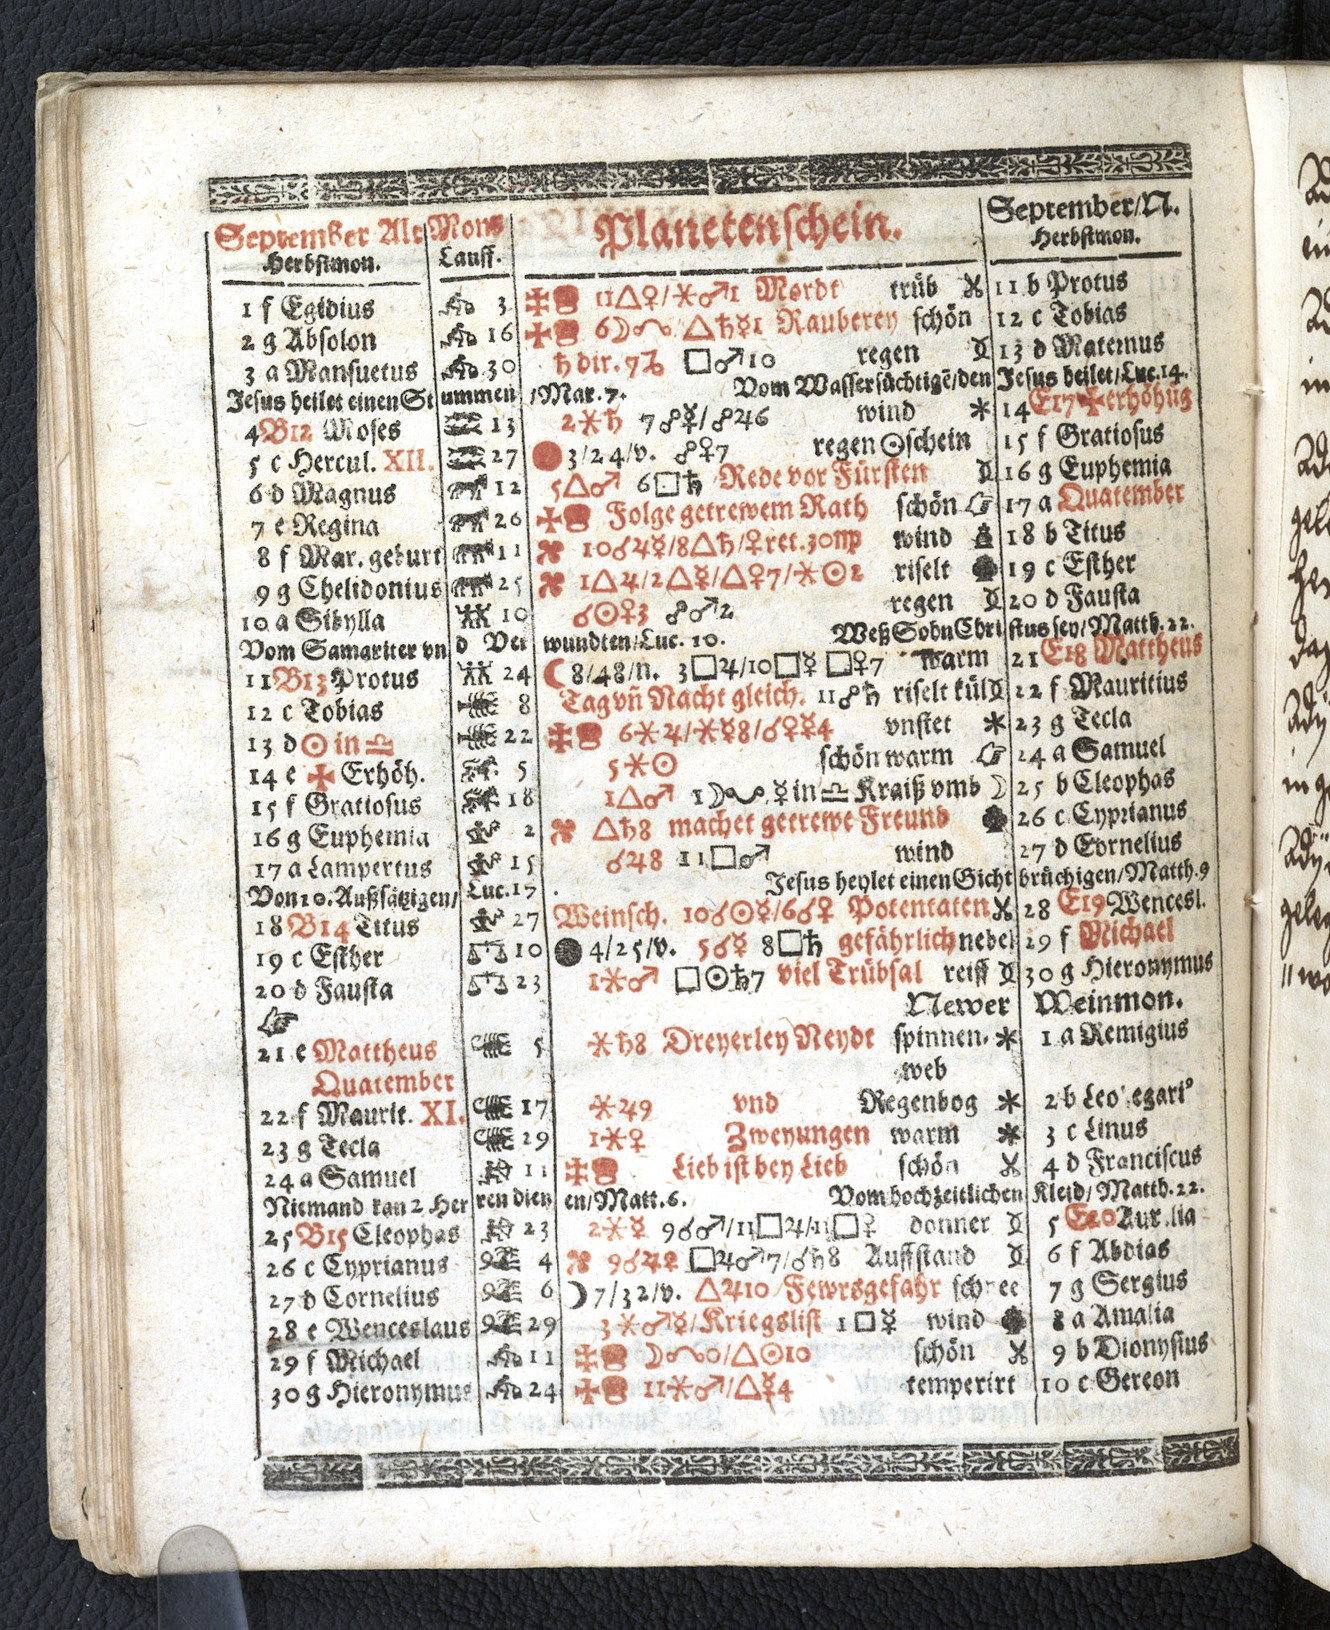 September Alt
Herbstmon.
Mons
Lauff.
Planetenschein.
September/N.
Herbstmon.
1 f Egidius 3 ✠ 11△♀/⚹♂1 Mordt trüb 11 b Protus
2 g Absolon 16 ✠ 6☽ △♄☿1 Rauberey schön 12 c Tobias
3 a Mansuetus 30 ♄ dir. 7♑ □♂10 regen 13 d Maternus
Jesus heilet einen Stummen/Mar. 7. Vom Wassersüchtigē/den Jesus heilet/Luc. 14.
4 B12 Moses 13 2⚹♄ 7☍☿/☍♃6 wind ⚹ 14 E17 ✠ erhöhūg
5 c Hercul. XII. 27 3/24/v. ☍♀7 regen ☉schein 15 f Gratiosus
6 d Magnus 12 5△♂ 6□♄ Rede vor Fürsten 16 g Euphemia
7 e Regina 26 ✠ Folge getrewem Rath schön ☞ 17 a Quatember
8 f Mar. geburt 11 10☌♃☿/8△♄/♀ret. 30♍ wind 18 b Titus
9 g Chelidonius 25 1△♃/2△☿/△♀7/⚹☉2 riselt 19 c Esther
10 a Sibylla 10 ☌☉♀3 ☍♂2 regen 20 d Fausta
Vom Samariter vnd Verwundten/Luc. 10. Weß Sohn Christus sey/Matth. 22.
11 B13 Protus 24 ☾ 8/48/n. 3□♃/10□☿ □♀7 warm 21 E18 Mattheus
12 c Tobias 8 Tag vñ Nacht gleich. 11☍♄ riselt kül 22 f Mauritius
13 d ☉ in ♎ 22 ✠ 6⚹♃/⚹☿8/☌♀☿4 vnstet ⚹ 23 g Tecla
14 e ✠ Erhöh. 5 5⚹☉ schön warm ☞ 24 a Samuel
15 f Gratiosus 18 1△♂ 1☽ ☿ in ♎ Kraiß vmb ☽ 25 b Cleophas
16 g Euphemia 2 △♄8 machet getrewe Freund 26 c Cyprianus
17 a Lampertus 15 ☌♃8 11□♂ wind 27 d Cornelius
Von 10. Außsätzigen/Luc. 17. Jesus heylet einen Gichtbrüchigen/Matth. 9
18 B14 Titus 27 Weinsch. 10☌☉☿/6☌♀ Potentaten 28 E19 Wencesl.
19 c Esther 10 ● 4/25/v. 5☌☿ 8□♄ gefährlich nebel 29 f Michael
20 d Fausta 23 1⚹♂ □☉♄7 viel Trübsal reiff 30 g Hieronymus
☞ Newer Weinmon.
21 e Mattheus 5 ⚹♄8 Dreyerley Neydt spinnen- ⚹ 1 a Remigius
Quatember web
22 f Maurit. XI. 17 ⚹♃9 vnd Regenbog ⚹ 2 b Leodegari⁹
23 g Tecla 29 1⚹♀ Zweyungen warm ⚹ 3 c Linus
24 a Samuel 11 ✠ Lieb ist bey Lieb schön 4 d Franciscus
Niemand kan 2 Herren dienen/Matt. 6. Vom hochzeitlichen Kleid/Matth. 22.
25 B15 Cleophas 23 2⚹☿ 9☌♂/11□♃/11□♀ donner 5 E20 Aurelia
26 c Cyprianus 4 9☌♃♀ □♃♂7/☌♄8 Auffstand 6 f Abdias
27 d Cornelius 6 ☽ 7/32/v. △♃10 Fewrsgefahr schnee 7 g Sergius
28 e Wenceslaus 29 3⚹♂☿/Kriegslist 1□☿ wind 8 a Amalia
29 f Michael 11 ✠ ☽ 0/△☉10 schön 9 b Dionysius
30 g Hieronymus 24 ✠ 11⚹♂/△☿4 temperirt 10 c Gereon